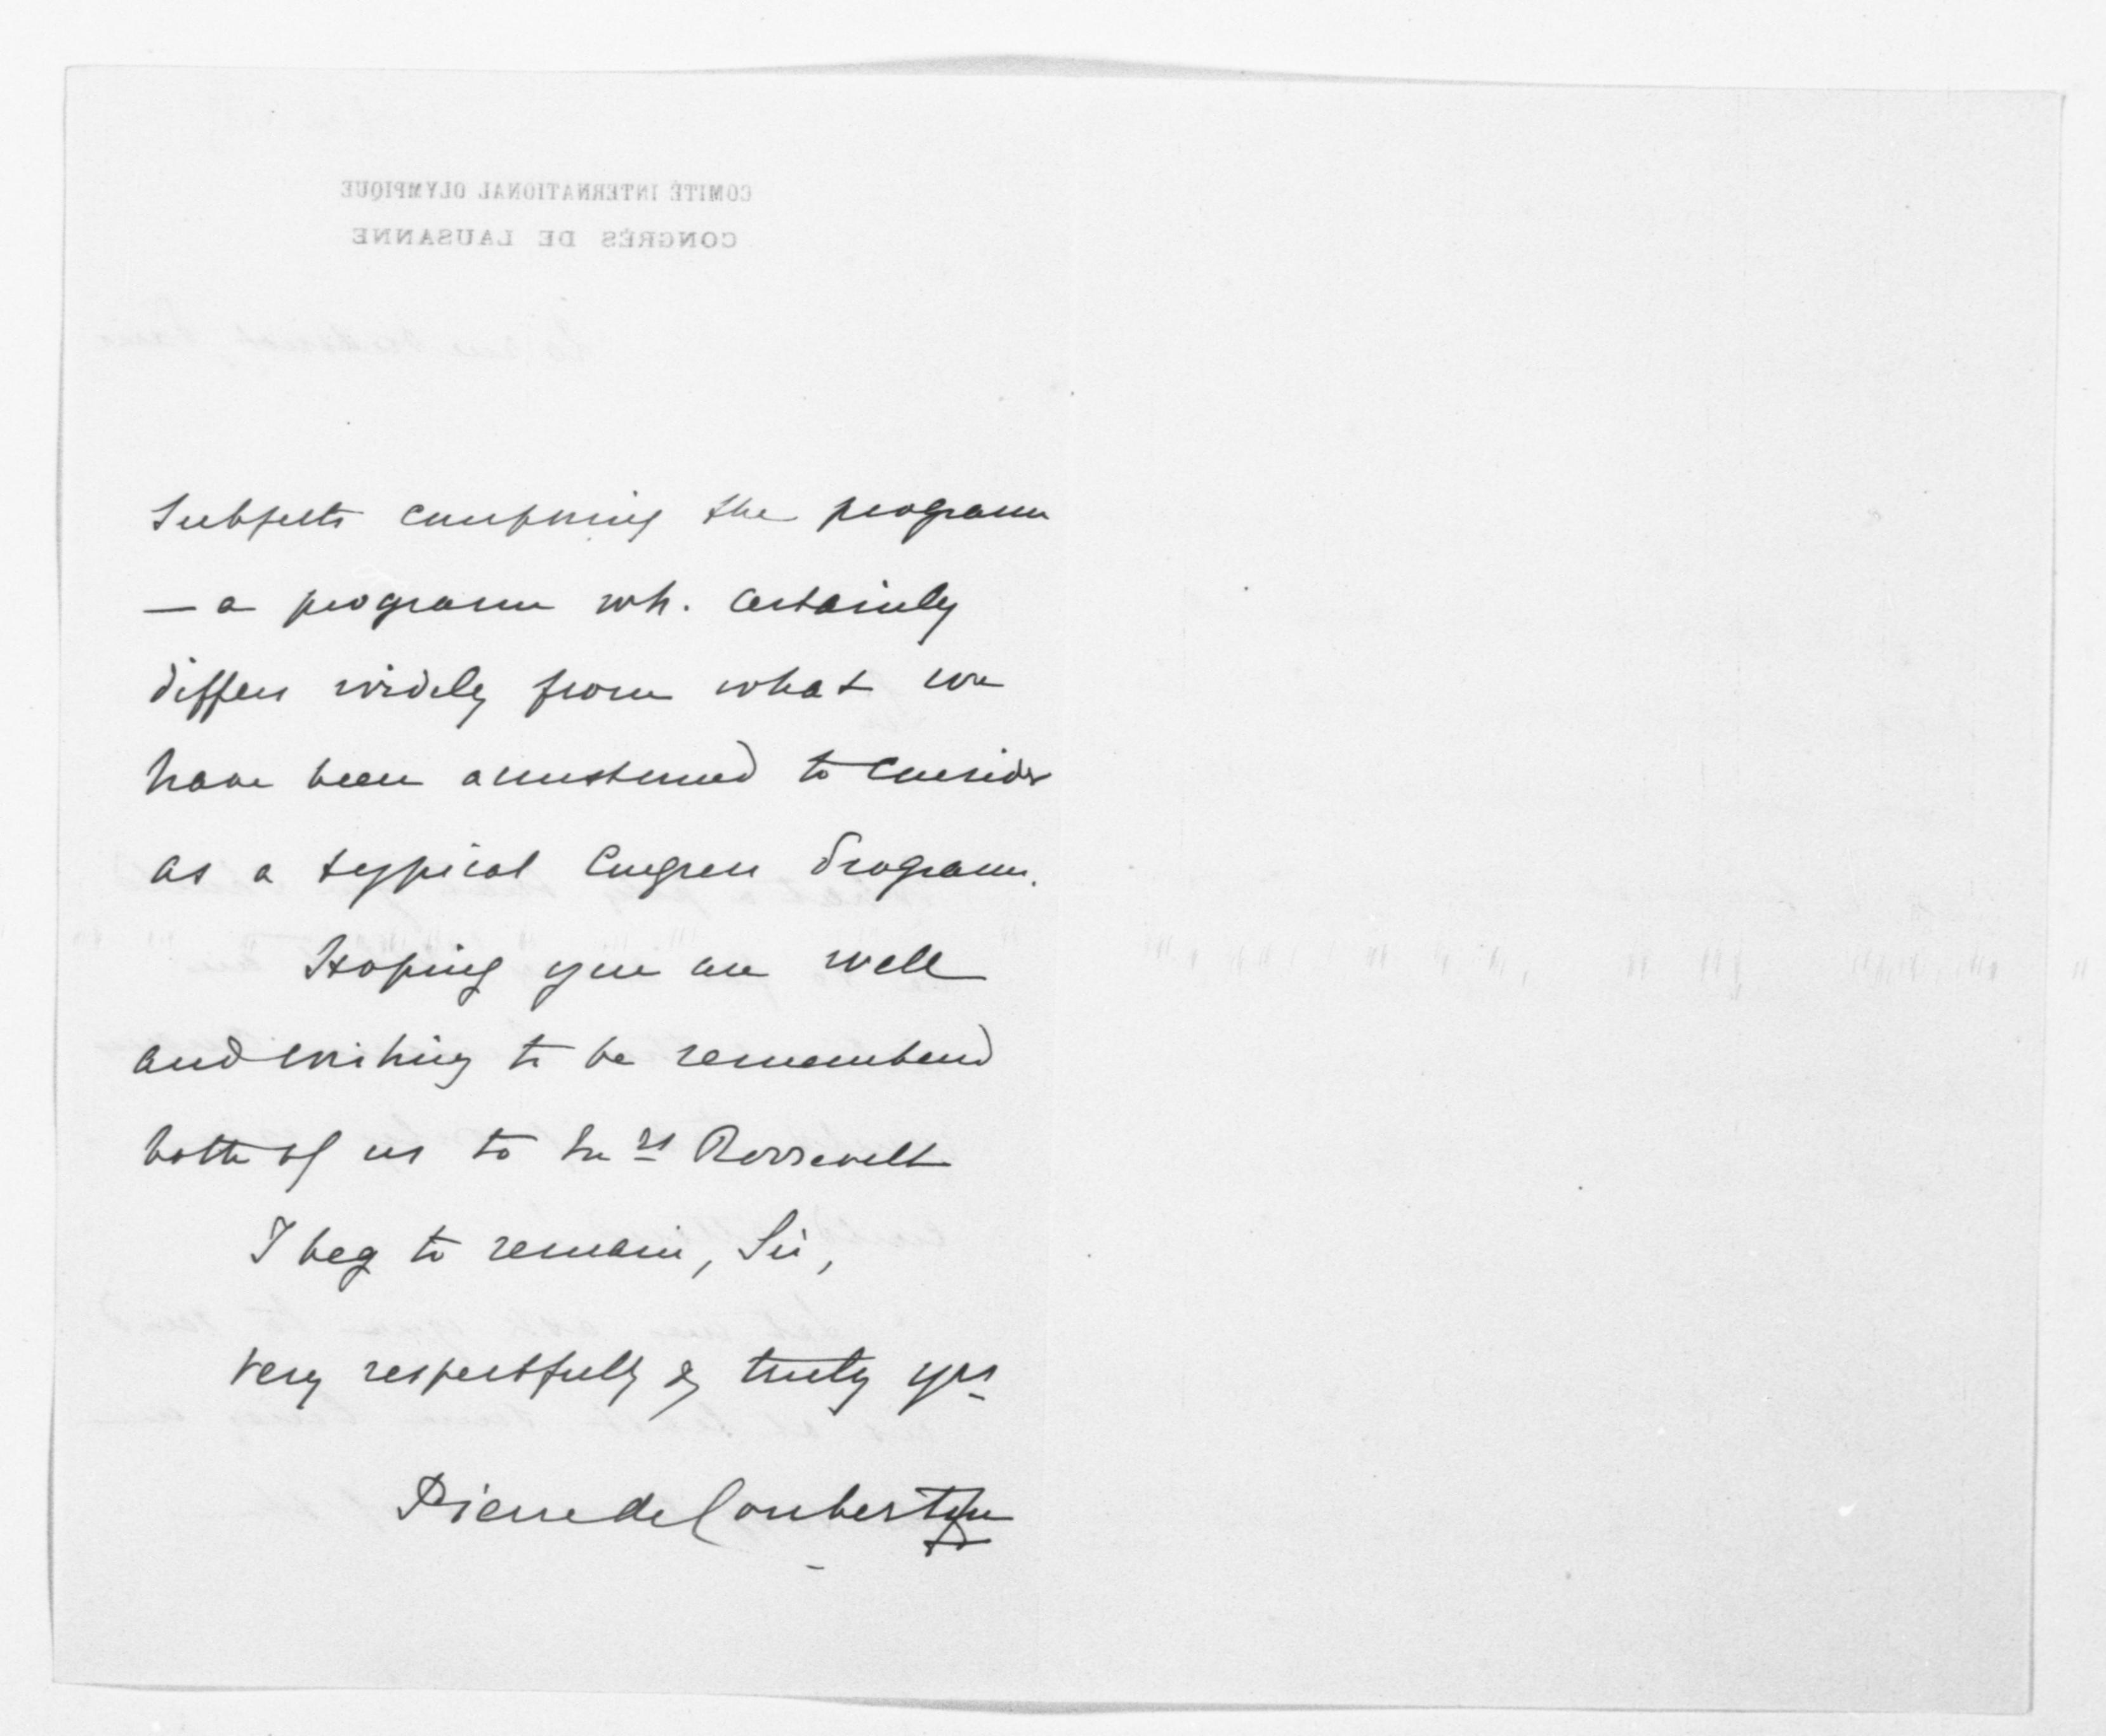 COMITÉ INTERNATIONAL OLYMPIQUE
CONGRÈS DE LAUSANNE
subjects comprising the program
— a program wh. certainly
differs widely from what we
have been accustomed to consider
as a typical Congress Program.
Hoping you are well
and wishing to be remembered
both of us to Mrs Roosevelt
I beg to remain, Sir,
very respectfully & truly yrs
Pierre de Coubertin